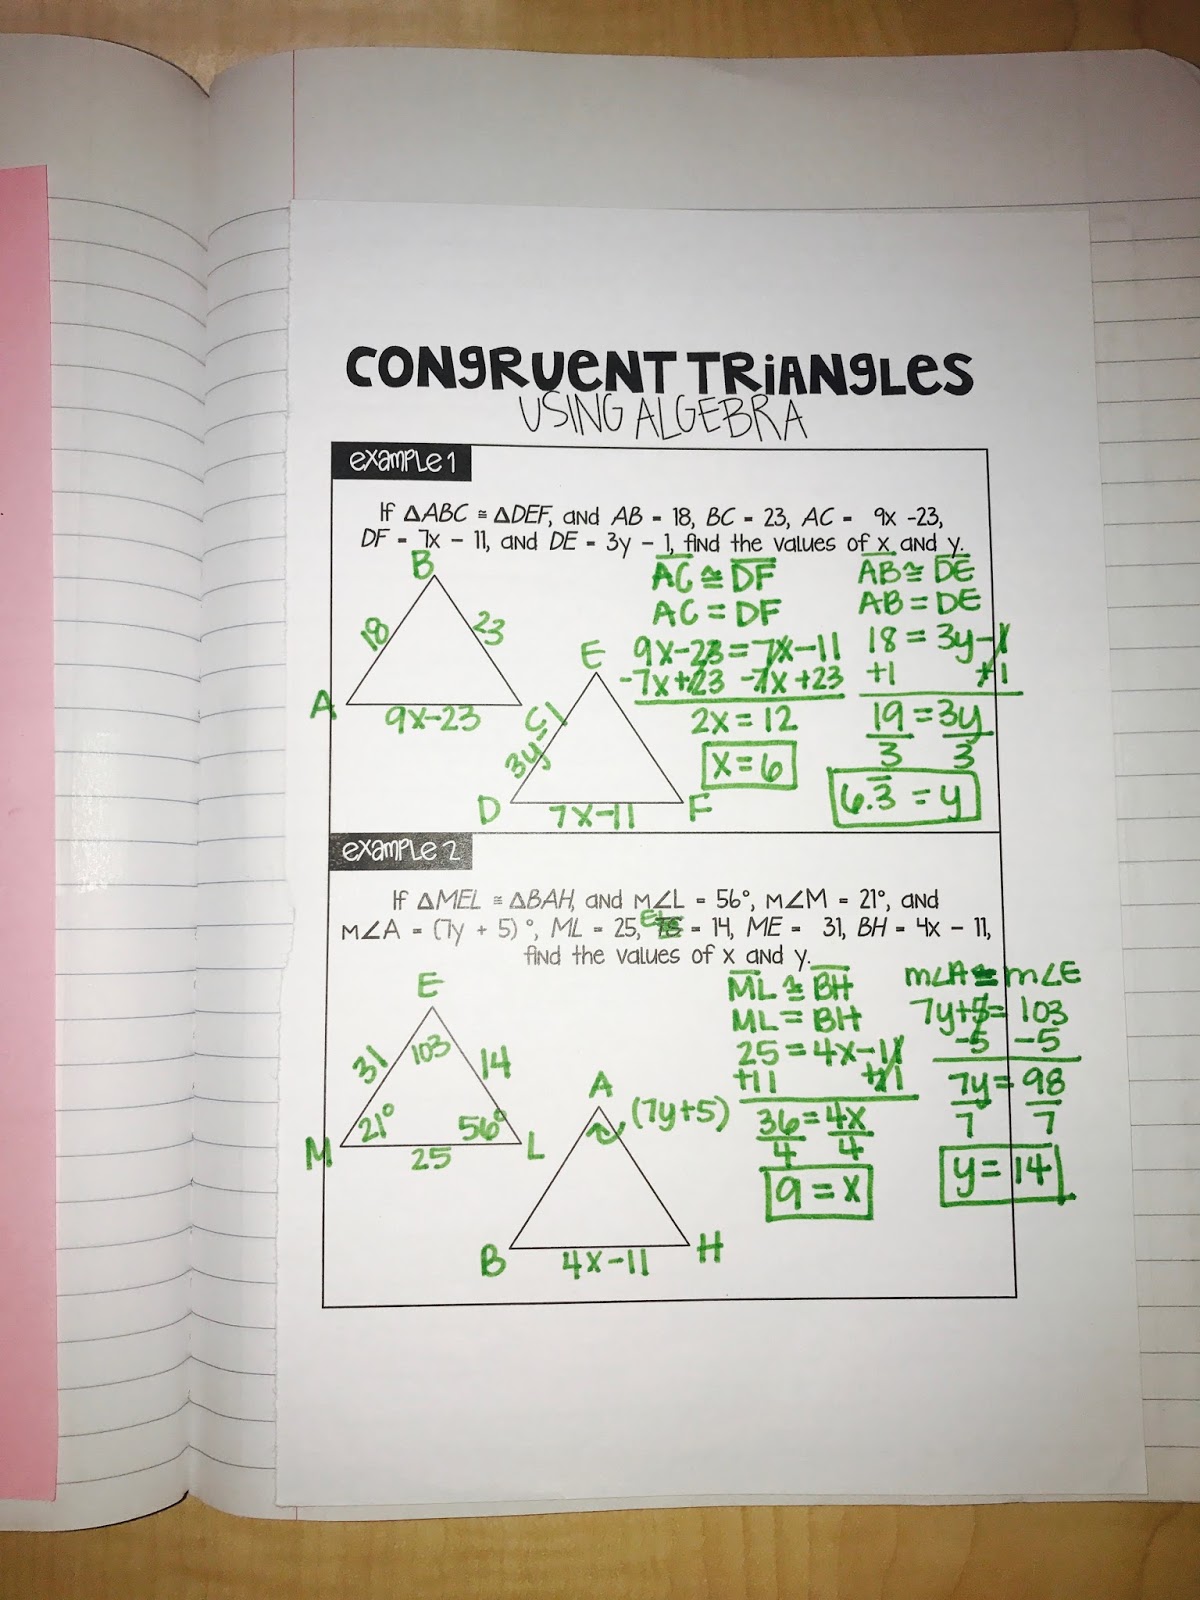 CONGRUENT TRIANGLES
USING ALGEBRA
example 1
If △ABC ≅ △DEF, and AB = 18, BC = 23, AC = 9x -23,
DF = 7x - 11, and DE = 3y - 1, find the values of x and y.
B
18
23
A
9x-23
C
E
3y-1
D
7x-11
F
AC ≅ DF
AC = DF
9x-23=7x-11
-7x+23 -7x+23
2x=12
x=6
AB ≅ DE
AB = DE
18 = 3y-1
+1 +1
19 = 3y
3 3
6.3̅ = y
example 2
If △MEL ≅ △BAH, and m∠L = 56°, m∠M = 21°, and
m∠A = (7y + 5)°, ML = 25, EL = 14, ME = 31, BH = 4x - 11,
find the values of x and y.
E
31
103
14
21°
56°
M
25
L
A
(7y+5)
B
4x-11
H
ML ≅ BH
ML = BH
25 = 4x-11
+11 +11
36 = 4x
4 4
9 = x
m∠A = m∠E
7y+5= 103
-5 -5
7y = 98
7 7
y = 14